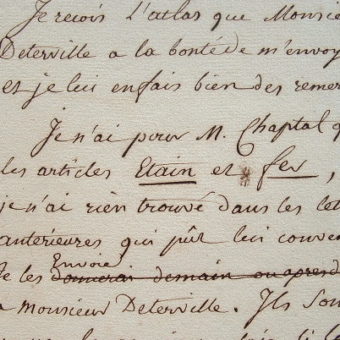 Je reçois L'atlas que Monsie
Deterville a la bonté de m'envoy
et je lui en fais bien des remer
Je n'ai pour M. Chaptal q
les articles Etain et fer,
je n'ai rien trouvé dans les let
antérieures qui pût lui conve
Envoie
Je les donnerai demain ou apresd
a monsieur Deterville. Ils son